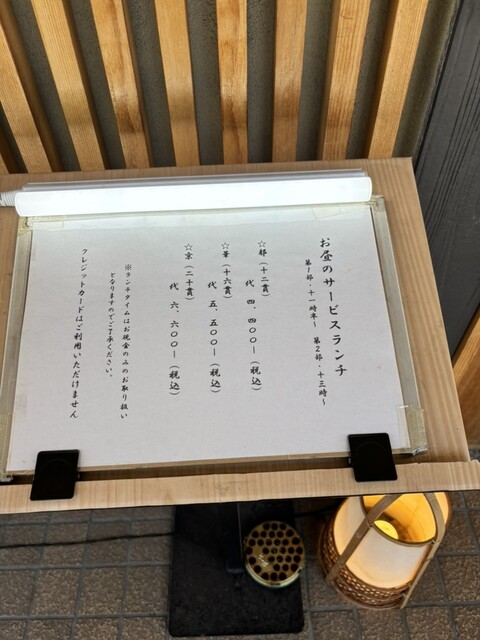 お昼のサービスランチ
第1部・十一時半～　第2部・十三時～
☆都（十二貫）
代　四、四〇〇ー（税込）
☆華（十六貫）
代　五、五〇〇ー（税込）
☆京（二十貫）
代　六、六〇〇ー（税込）
※ランチタイムはお現金のみのお取り扱い
となりますのでご了承ください。
クレジットカードはご利用いただけません